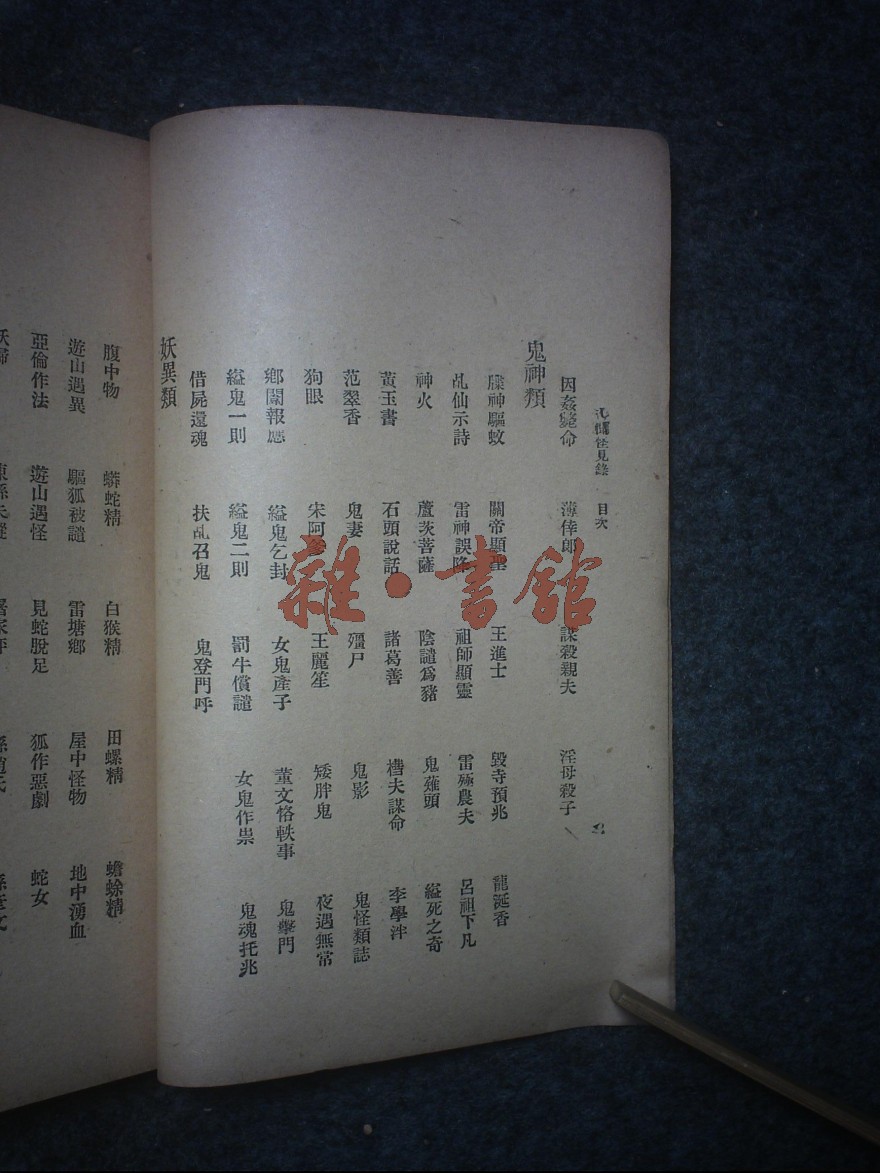 目次
因姦斃命 薄倖郎 謀殺親夫 淫母殺子
鬼神類
驅蚊 關帝顯聖 王進士 毀寺預兆 龍涎香
乩仙示詩 雷神誤降 祖師顯靈 雷殛農夫 呂祖下凡
神火 蘆茨菩薩 陰譴爲豬 鬼薙頭 縊死之奇
黃玉書 石頭說話 諸葛善 槽夫謀命 李學泮
范翠香 鬼妻 殭尸 鬼影 鬼怪類誌
狗眼 宋阿 王麗笙 矮胖鬼 夜遇無常
鄉闈報應 縊鬼乞封 女鬼產子 董文恪軼事 鬼擊門
縊鬼一則 縊鬼二則 罰牛償譴 女鬼作祟 鬼魂托兆
借屍還魂 扶乩召鬼 鬼登門呼
妖異類
腹中物 蟒蛇精 白猴精 田螺精 蟾蜍精
遊山遇異 驅狐被譴 雷塘鄉 屋中怪物 地中湧血
亞倫作法 遊山遇怪 見蛇脫足 狐作惡劇 蛇女
雜·書館